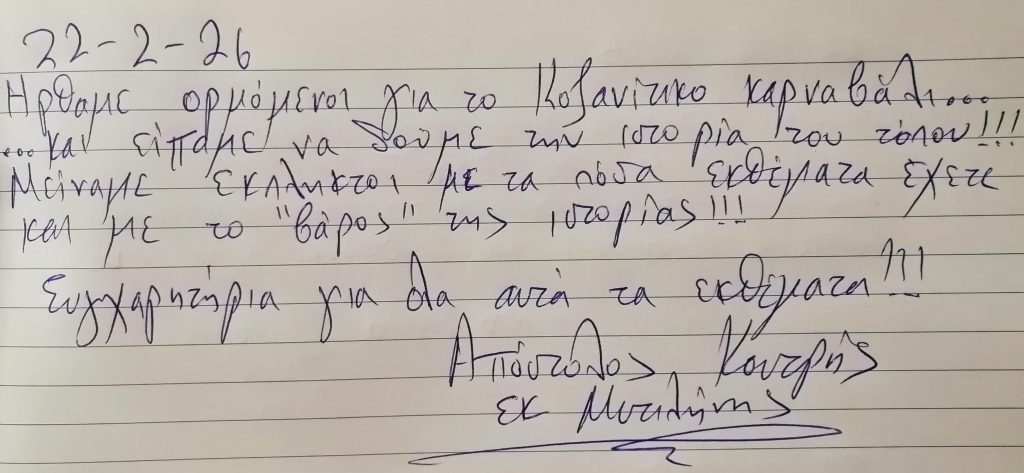 22-2-26
Ηρθαμε ορμόμενοι για το Κοζανίτικο καρναβάλι....
...και είπαμε να δούμε την ιστορία του τόπου!!!
Μείναμε έκπληκτοι με τα πόσα εκθέματα έχετε
και με το "βάρος" της ιστορίας!!!
Συγχαρητήρια για όλα αυτά τα εκθέματα!!!
Απόστολος Κουτρής
εκ Μυτιλήνης